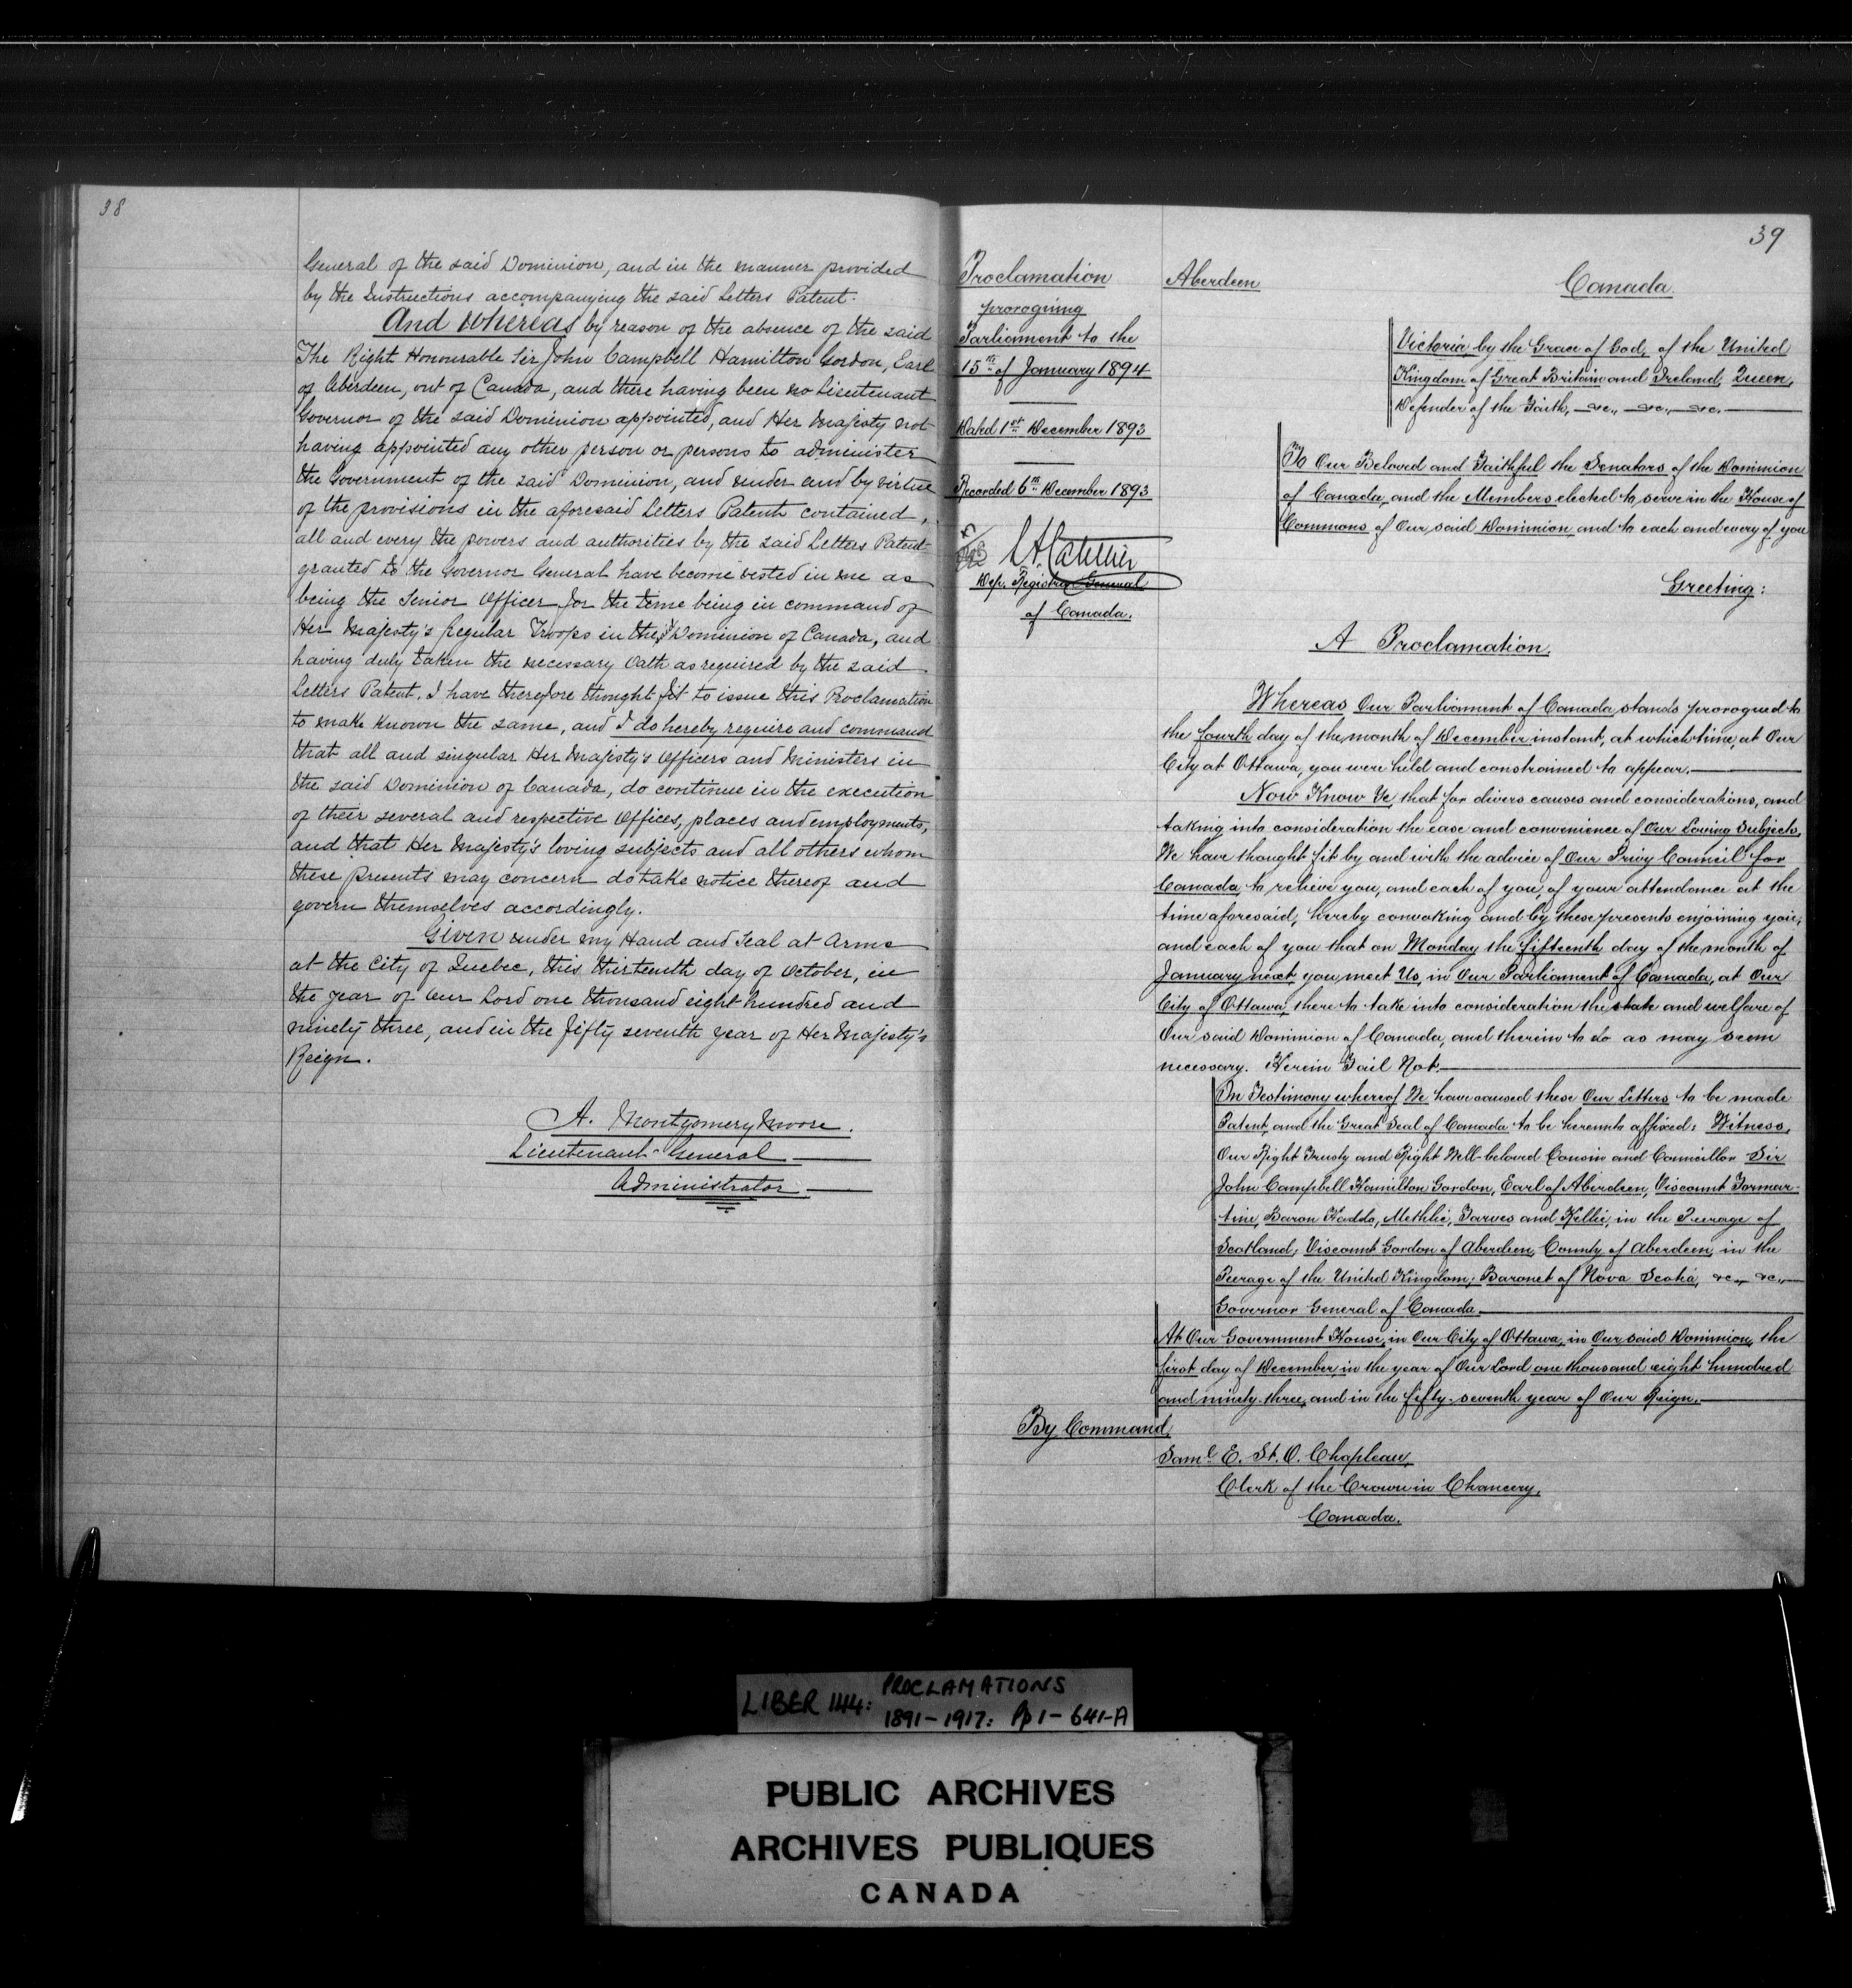 38
General of the said Dominion, and in the manner provided
by the Instructions accompanying the said Letters Patent.
And whereas by reason of the absence of the said
The Right Honourable Sir John Campbell Hamilton Gordon, Earl
of Aberdeen, out of Canada, and there having been no Lieutenant
Governor of the said Dominion appointed, and Her Majesty not
having appointed any other person or persons to administer
the Government of the said Dominion, and under and by virtue
of the provisions in the aforesaid Letters Patent contained,
all and every the powers and authorities by the said Letters Patent
granted to the Governor General have become vested in me as
being the Senior Officer for the time being in command of
Her Majesty's Regular Troops in the Dominion of Canada, and
having duly taken the necessary Oath as required by the said
Letters Patent. I have therefore thought fit to issue this Proclamation
to make known the same, and I do hereby require and command
that all and singular Her Majesty's Officers and Ministers in
the said Dominion of Canada, do continue in the execution
of their several and respective Offices, places and employments,
and that Her Majesty's loving subjects and all others whom
these presents may concern do take notice thereof and
govern themselves accordingly.
Given under my Hand and Seal at Arms
at the City of Quebec, this thirteenth day of October, in
the year of Our Lord one thousand eight hundred and
ninety three, and in the fifty seventh year of Her Majesty's
Reign.
A. Montgomery Moore.
Lieutenant-General
Administrator
39
Proclamation
proroguing
Parliament to the
15th of January 1894
Dated 1st December 1893
Recorded 6th December 1893
Dep. Registrar General
of Canada.
Aberdeen
Canada.
Victoria, by the Grace of God, of the United
Kingdom of Great Britain and Ireland, Queen,
Defender of the Faith, &c., &c., &c.
To Our Beloved and Faithful the Senators of the Dominion
of Canada, and the Members elected to serve in the House of
Commons of Our said Dominion, and to each and every of you
Greeting:
A Proclamation.
Whereas Our Parliament of Canada stands prorogued to
the fourth day of the month of December instant, at which time, at Our
City at Ottawa, you were held and constrained to appear.
Now Know Ye, that for divers causes and considerations, and
taking into consideration the ease and convenience of Our Loving Subjects,
We have thought fit by and with the advice of Our Privy Council for
Canada, to relieve you, and each of you, of your attendance at the
time aforesaid, hereby convoking and by these presents enjoining you,
and each of you that on Monday the fifteenth day of the month of
January next, you meet Us, in Our Parliament of Canada, at Our
City of Ottawa, there to take into consideration the state and welfare of
Our said Dominion of Canada, and therein to do as may seem
necessary. Herein Fail Not.
In Testimony whereof We have caused these Our Letters to be made
Patent, and the Great Seal of Canada to be hereunto affixed: Witness,
Our Right Trusty and Right Well-beloved Cousin and Councillor Sir
John Campbell Hamilton Gordon, Earl of Aberdeen, Viscount Formar-
tine, Baron Haddo, Methlic, Tarves and Kellie, in the Peerage of
Scotland; Viscount Gordon of Aberdeen, County of Aberdeen, in the
Peerage of the United Kingdom; Baronet of Nova Scotia, &c., &c.,
Governor General of Canada.
At Our Government House, in Our City of Ottawa, in Our said Dominion, the
first day of December, in the year of Our Lord one thousand eight hundred
and ninety-three, and in the fifty-seventh year of Our Reign.
By Command,
Saml. E. St. O. Chapleau,
Clerk of the Crown in Chancery,
Canada.
LIBER 144: PROCLAMATIONS
1891-1917: Pp 1-641-A
PUBLIC ARCHIVES
ARCHIVES PUBLIQUES
CANADA